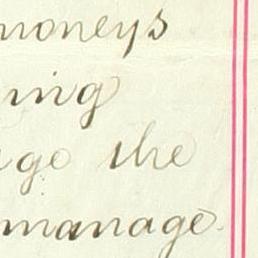 moneys
ning
ge the
manage